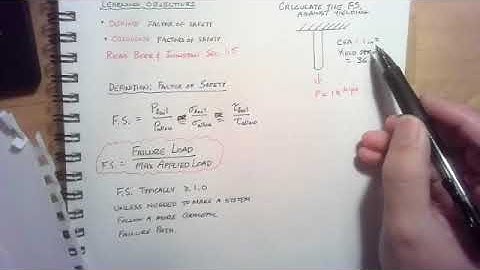 LEARNING OBJECTIVES
• DEFINE FACTOR OF SAFETY
• CALCULATE FACTORS OF SAFETY
READ BEER & JOHNSTON SEC 1.5
DEFINITION: FACTOR OF SAFETY
F.S. = P_fail / P_allow ≅ σ_fail / σ_allow ≅ τ_fail / τ_allow
F.S. = FAILURE LOAD / MAX APPLIED LOAD
F.S. TYPICALLY ≥ 1.0
UNLESS NEEDED TO MAKE A SYSTEM
FOLLOW A MORE GRACEFUL
FAILURE PATH.
CALCULATE THE F.S.
AGAINST YIELDING
CSA = 1 in²
YIELD
= 36
P = 18 kips